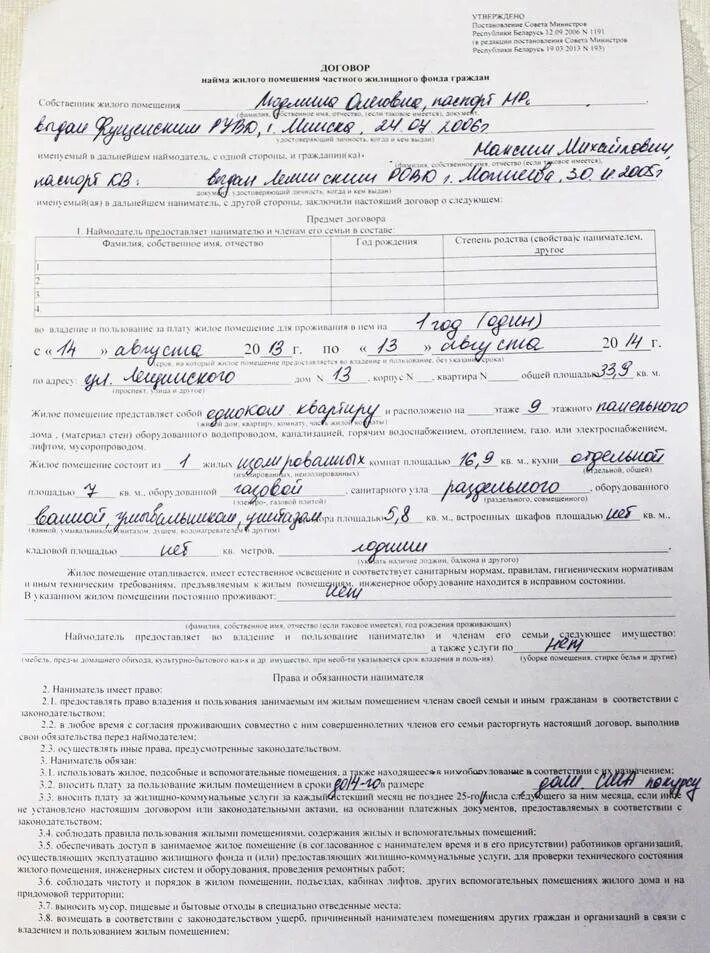 УТВЕРЖДЕНО
Постановление Совета Министров
Республики Беларусь 12.09.2006 N 1191
(в редакции постановления Совета Министров
Республики Беларусь 19.03.2013 N 193)
ДОГОВОР
найма жилого помещения частного жилищного фонда граждан
Собственник жилого помещения Людмила Олеговна, паспорт МР
(фамилия, собственное имя, отчество, (если таковое имеется), документ,
выдан Фрунзенским РУВД, г. Минска, 24.07.2006г
удостоверяющий личность, когда и кем выдан)
именуемый в дальнейшем наймодатель, с одной стороны, и гражданин(ка) Максим Михайлович,
(фамилия, собственное имя, отчество (если таковое имеется),
паспорт КВ: выдан Ленинским РОВД г. Могилева, 30.11.2005г
документ, удостоверяющий личность, когда и кем выдан)
именуемый(ая) в дальнейшем наниматель, с другой стороны, заключили настоящий договор о следующем:
Предмет договора
1. Наймодатель предоставляет нанимателю и членам его семьи в составе:
Фамилия, собственное имя, отчество Год рождения Степень родства (свойства)с нанимателем, другое
1
2.
3.
4.
во владение и пользование за плату жилое помещение для проживания в нем на 1 год (один)
с « 14 » августа 2013г. по « 13 » августа 2014 г.
(срок, на который жилое помещение предоставляется во владение и пользование, без указания срока)
по адресу: ул. дом N 13, корпус N , квартира N общей площадью 33,9 кв. м.
(проспект, улица и другое)
Жилое помещение представляет собой одноком. квартиру и расположено на этаже 9 этажного панельного
(жилой дом, квартиру, комнату, часть жилой комнаты)
дома , (материал стен) оборудованного водопроводом, канализацией, горячим водоснабжением, отоплением, газо- или электроснабжением,
лифтом, мусоропроводом.
Жилое помещение состоит из 1 жилых изолированных комнат площадью 16,9 кв. м., кухни отдельной
(изолированных, неизолированных) (отдельной, общей)
площадью 7 кв. м., оборудованной газовой , санитарного узла раздельного , оборудованного
(электро-, газовой плитой) (раздельного, совмещенного)
ванной, умывальником, унитазом площадью 5,8 кв. м., встроенных шкафов площадью нет кв. м.,
(ванной, умывальником, унитазом, душем, водонагревателем и другим)
кладовой площадью нет кв. метров, лоджии
(указать наличие лоджии, балкона и другого)
Жилое помещение отапливается, имеет естественное освещение и соответствует санитарным нормам, правилам, гигиеническим нормативам
и иным техническим требованиям, предъявляемым к жилым помещениям, инженерное оборудование находится в исправном состоянии.
В указанном жилом помещении постоянно проживают: нет
(фамилия, собственное имя, отчество (если таковое имеется), год рождения проживающих)
Наймодатель предоставляет во владение и пользование нанимателю и членам его семьи следующее имущество:
а также услуги по нет
(мебель, пред-ы домашнего обихода, культурно-бытового наз-я и др. имущество, при необ-ти указывается срок владения и поль-ия) (уборке помещения, стирке белья и другие)
Права и обязанности нанимателя
2. Наниматель имеет право:
2.1. предоставлять право владения и пользования занимаемым им жилым помещением членам своей семьи и иным гражданам в соответствии с
законодательством;
2.2. в любое время с согласия проживающих совместно с ним совершеннолетних членов его семьи расторгнуть настоящий договор, выполнив
свои обязательства перед наймодателем;
2.3. осуществлять иные права, предусмотренные законодательством.
3. Наниматель обязан:
3.1. использовать жилое, подсобные и вспомогательные помещения, а также находящееся в них оборудование в соответствии с их назначением;
3.2. вносить плату за пользование жилым помещением в сроки до 14-го в размере долл. США по курсу
3.3. вносить плату за жилищно-коммунальные услуги за каждый истекший месяц не позднее 25-го числа следующего за ним месяца, если иное
не установлено настоящим договором или законодательными актами, на основании платежных документов, предоставляемых в соответствии с
законодательством;
3.4. соблюдать правила пользования жилыми помещениями, содержания жилых и вспомогательных помещений;
3.5. обеспечивать доступ в занимаемое жилое помещение (в согласованное с нанимателем время и в его присутствии) работников организаций,
осуществляющих эксплуатацию жилищного фонда и (или) предоставляющих жилищно-коммунальные услуги, для проверки технического состояния
жилого помещения, инженерных систем и оборудования, проведения ремонтных работ;
3.6. соблюдать чистоту и порядок в жилом помещении, подъездах, кабинах лифтов, других вспомогательных помещениях жилого дома и на
придомовой территории;
3.7. выносить мусор, пищевые и бытовые отходы в специально отведенные места;
3.8. возмещать в соответствии с законодательством ущерб, причиненный нанимателем помещениям других граждан и организаций в связи с
владением и пользованием жилым помещением;